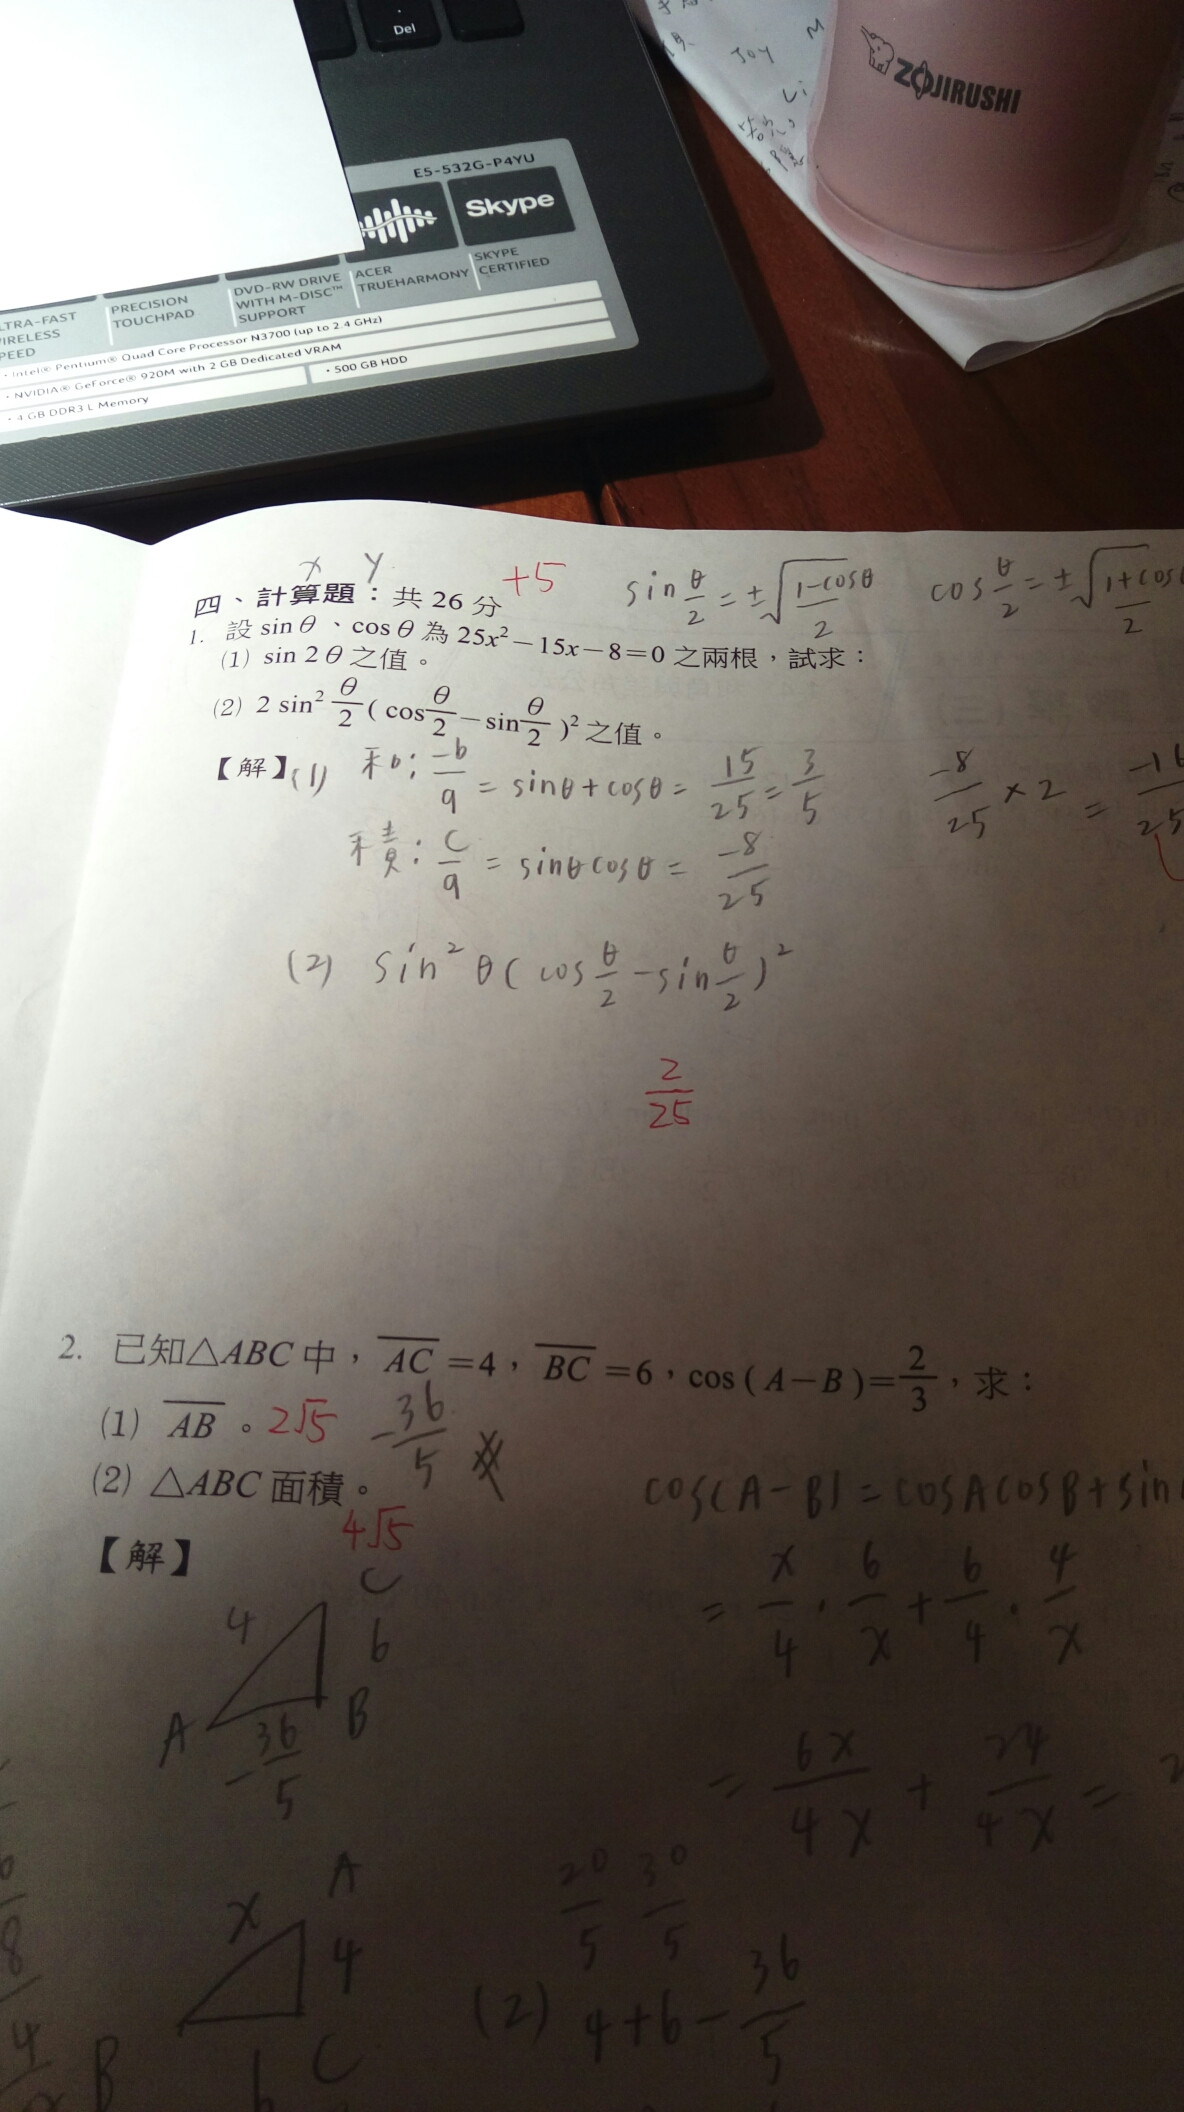 Del
JOY
M
Li
ZOJIRUSHI
E5-532G-P4YU
Skype
LTRA-FAST
IRELESS
PEED
PRECISION
TOUCHPAD
DVD-RW DRIVE
WITH M-DISC™
SUPPORT
ACER
TRUEHARMONY
SKYPE
CERTIFIED
· Intel® Pentium® Quad Core Processor N3700 (up to 2.4 GHz)
· NVIDIA® GeForce® 920M with 2 GB Dedicated VRAM
· 500 GB HDD
· 4 GB DDR3 L Memory
x y
四、計算題：共 26 分 +5
sin θ/2 = ±√(1-cosθ/2) cos θ/2 = ±√(1+cosθ/2)
1. 設 sin θ、cos θ 為 25x²－15x－8＝0 之兩根，試求：
(1) sin 2θ 之值。
(2) 2 sin² θ/2 ( cos θ/2 － sin θ/2 )² 之值。
【解】(1) 和: -b/a = sinθ+cosθ = 15/25 = 3/5
-8/25 × 2 = -16/25
積: c/a = sinθcosθ = -8/25
(2) sin² θ ( cos θ/2 - sin θ/2 )²
2/25
2. 已知△ABC 中，AC＝4，BC＝6，cos ( A－B )＝2/3，求：
(1) AB。 2√5 -36/5
(2) △ABC 面積。
4√5
【解】
cos(A-B) = cosAcosB+sin
= x/4 · 6/x + 6/4 · 4/x
= 6x/4x + 24/4x =
4 C 6
A B
-36/5
x A 4
B 6 C
20/5 30/5
(2) 4+6-36/5